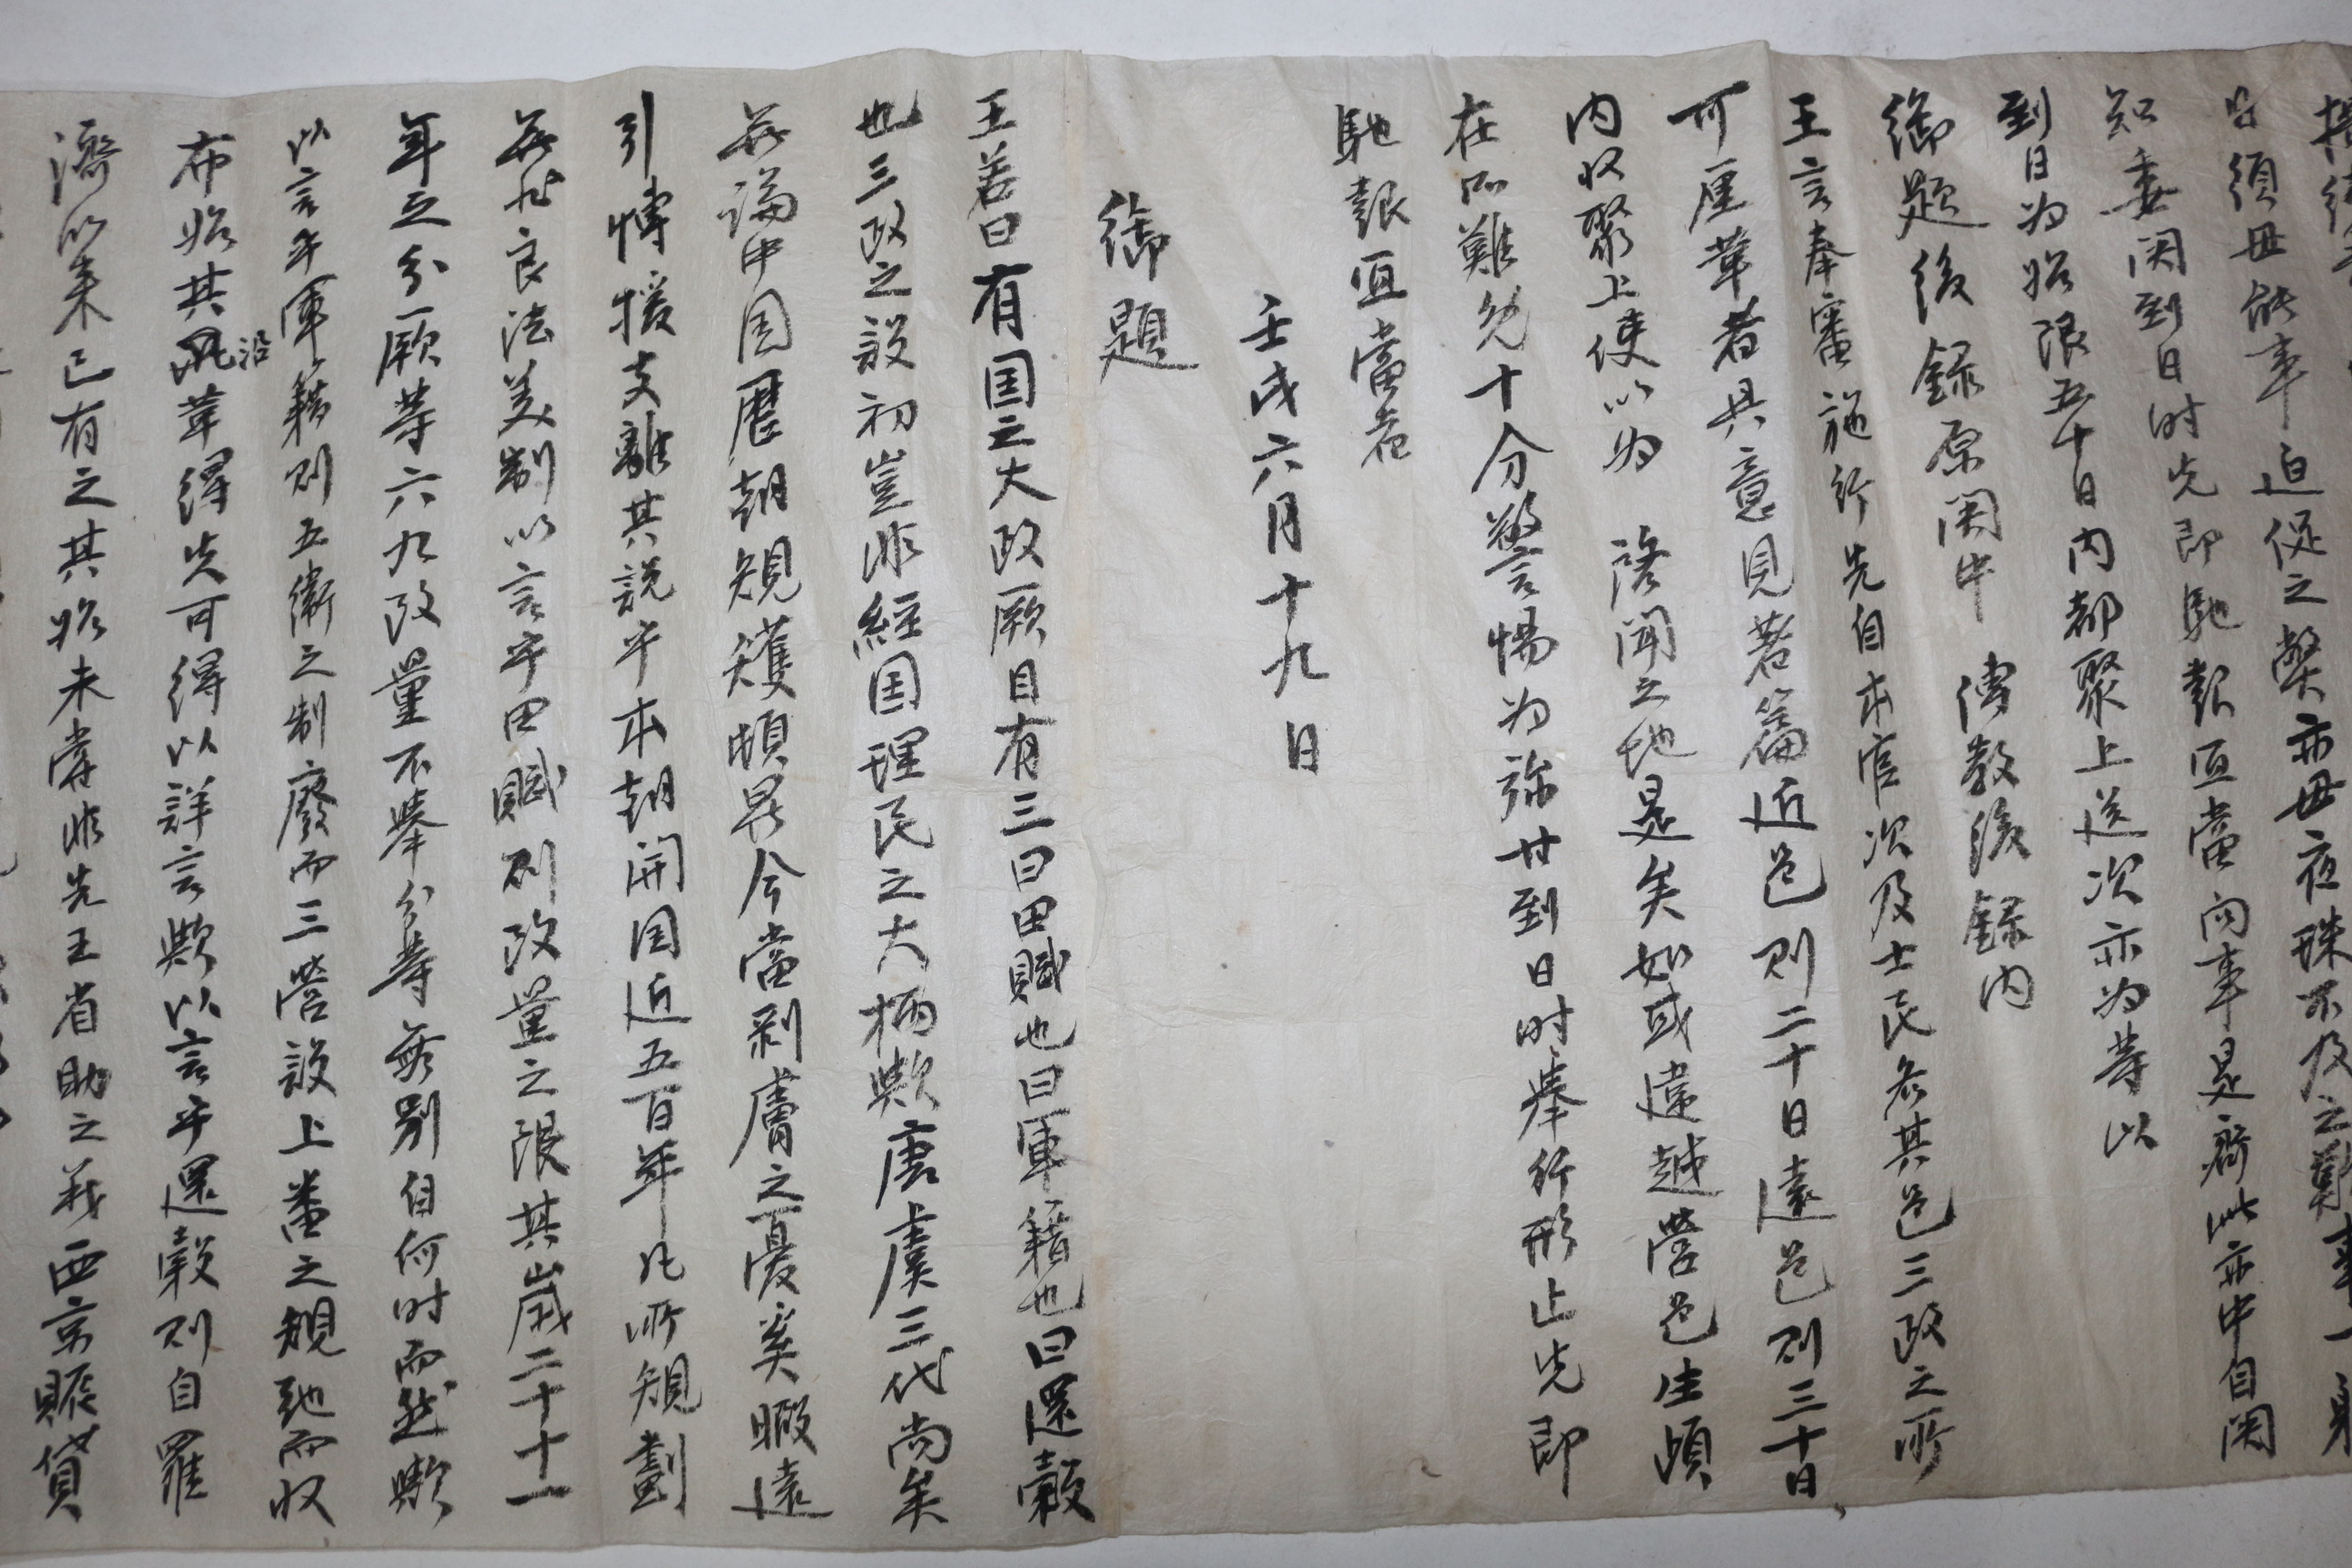 須毋能事迫促之弊亦毋夜殊不及之
知委関到日时先即馳報宜當向事是齊此亦中自関
到日为始限五十日内都聚上送次亦为等以
御題後錄原関中 傳教後錄内
王言奉審施行先自本官次及士民各其邑三政之所
可厘革者具意見著篇近邑則二十日遠邑則三十日
内收聚上使以为 啓聞之地是矣如或違越營邑生頉
在所難免十分警惕为旀甘到日时擧行形止先即
馳報宜當者
壬戌六月十九日
御題
王若曰有国之大政厥目有三曰田賦也曰軍籍也曰還穀
也三政之設初豈非經国理民之大柄歟唐虞三代尚矣
無論中国歷朝規矱煩晷今當剥膚之憂奚暇遠
引愽援支離其說乎本朝開国近五百年凡所規劃
無非良法美制以言乎田賦則改量之限其歲二十十一
年之分厥等六九改量不擧分等無別自何时而然歟
以言乎軍籍則五衛之制廢而三營設上番之規弛而收
布始其沿革得失可得以詳言歟以言乎還穀則自羅
濟以来已有之其始未嘗非先王省助之義西京賑貸